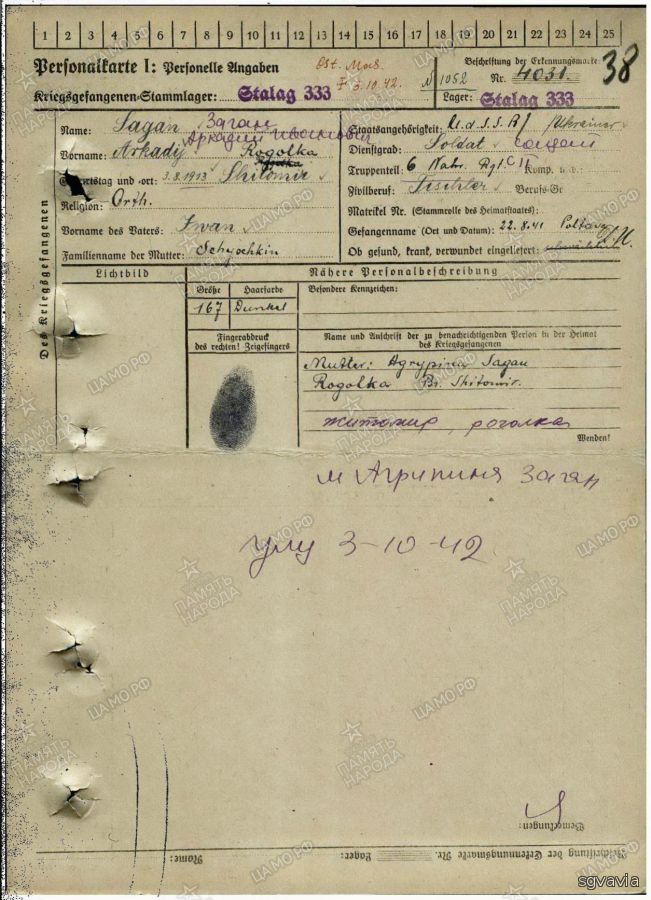 1 2 3 4 5 6 7 8 9 10 11 12 13 14 15 16 17 18 19 20 21 22 23 24 25
Personalkarte I: Personelle Angaben
Ost. Mas.
F 3.10.42.
N 1052
Beschriftung der Erkennungsmarke
Nr. 4031.
38
Kriegsgefangenen-Stammlager: Stalag 333
Lager: Stalag 333
Name: Sagan Заган
Аркадий Иванович
Vorname: Arkadij Rogolka
Geburtstag und -ort: 3.8.1913 Shitomir
Religion: Orth.
Vorname des Vaters: Iwan
Familienname der Mutter: Schyochkin
Staatsangehörigkeit: U.d.S.S.R / Ukrainer
Dienstgrad: Soldat солдат
Truppenteil: 6 Nahr. Rgt. Komp. u.a.:
Zivilberuf: Tischler Berufs-Gr.
Matrikel Nr. (Stammrolle des Heimatstaates):
Gefangennahme (Ort und Datum): 22.8.41 Poltawa
Ob gesund, krank, verwundet eingeliefert:
Des Kriegsgefangenen
Lichtbild
Nähere Personalbeschreibung
Größe Haarfarbe
167 Dunkel
Besondere Kennzeichen:
Fingerabdruck
des rechten! Zeigefingers
Name und Anschrift der zu benachrichtigenden Person in der Heimat
des Kriegsgefangenen
Mutter: Agrypina Sagan
Rogolka Br. Shitomir.
житомир, роголка
Wenden!
м Агрипиня Заган
3-10-42
Bemerkungen:
Beschriftung der Erkennungsmarke Nr. Lager: Name:
ПАМЯТЬ НАРОДА
ЦАМО РФ
sgvavia